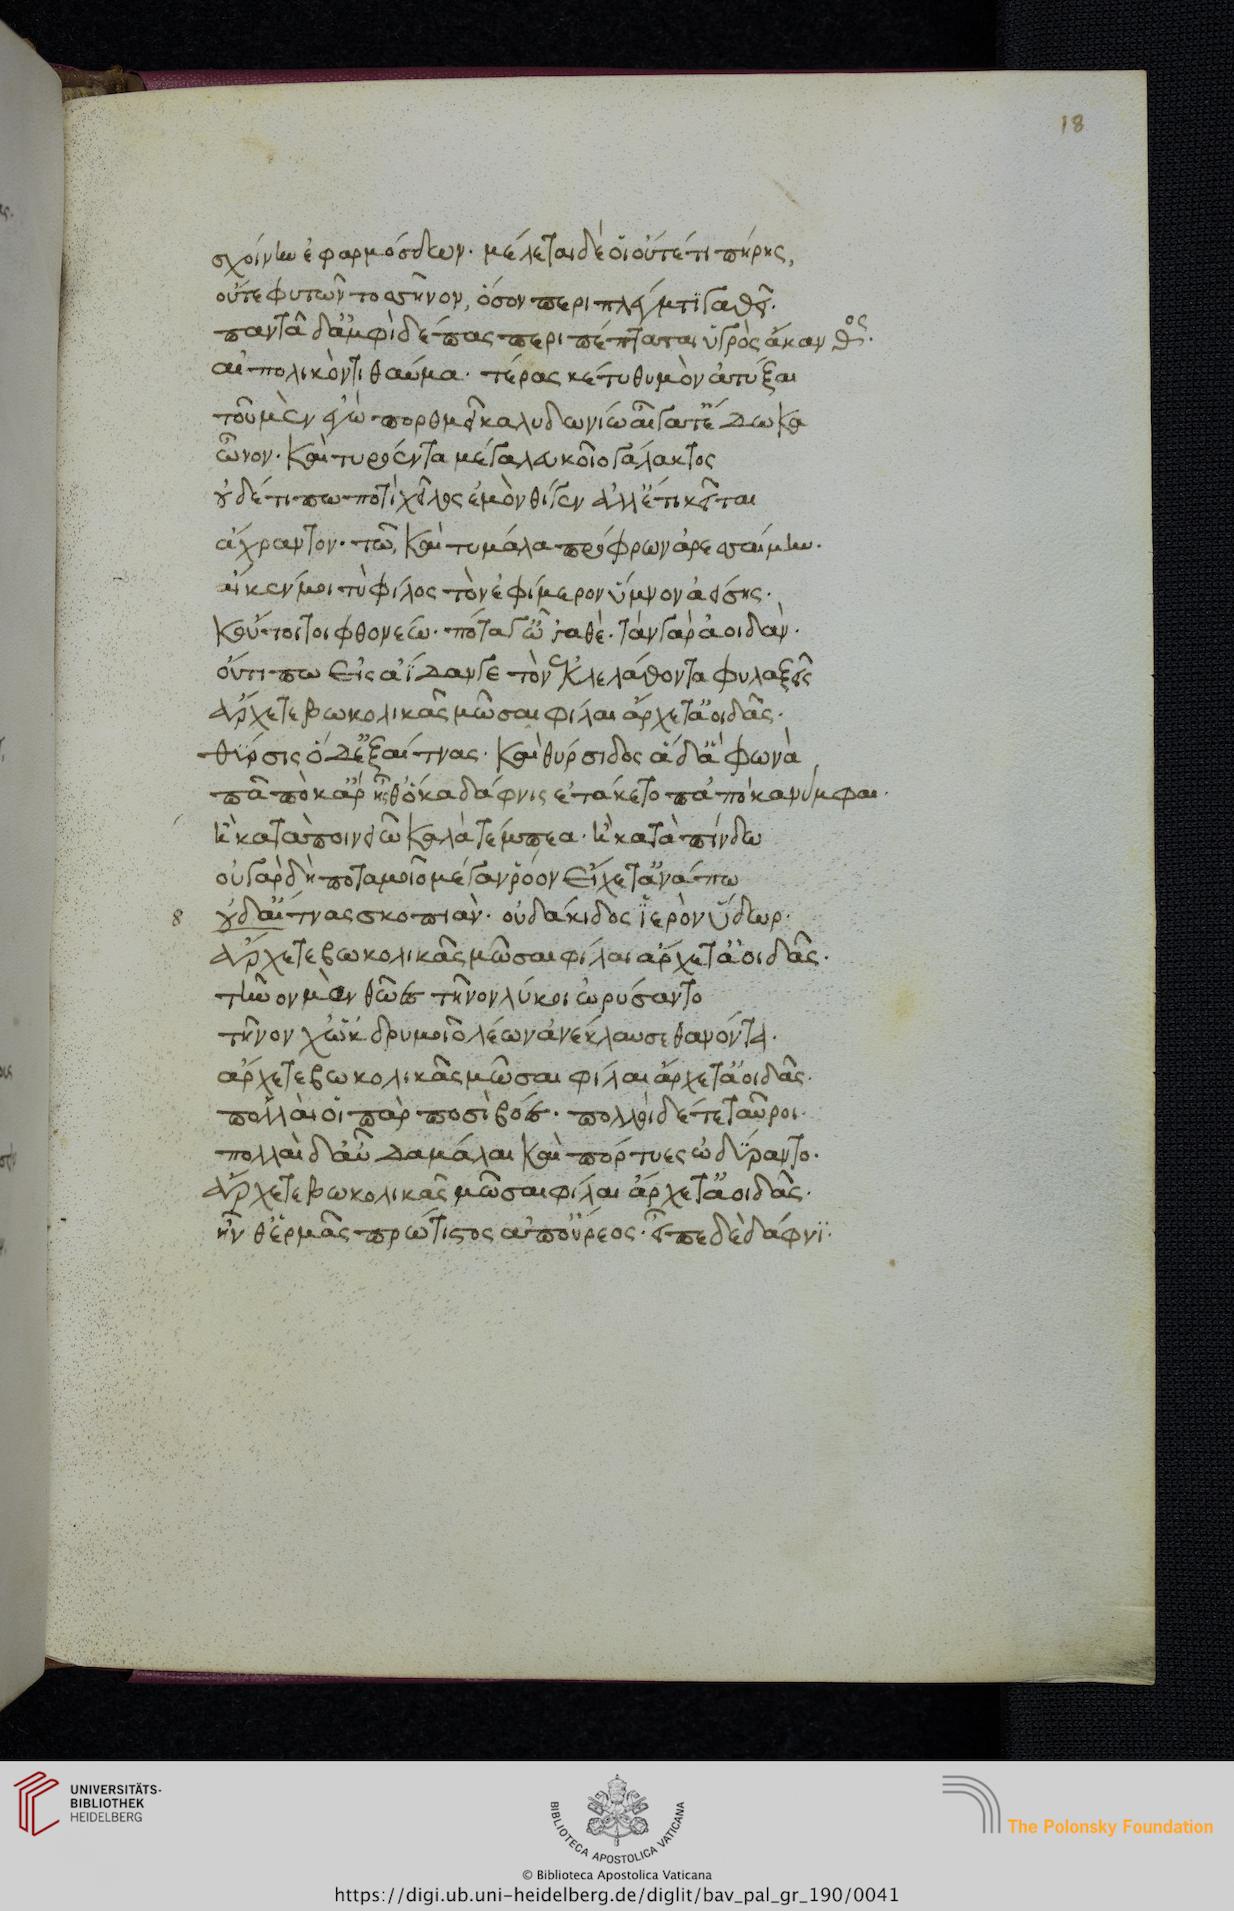 18
σχοίνω ἐφαρμόσδων. μέλεται δέ οἱ οὔτέ τι πήρης,
οὔτε φυτῶν τοσσῆνον, ὅσον περὶ πλέγματι γαθεῖ.
παντᾶ δ' ἀμφὶ δέπας περιπέπταται ὑγρὸς ἄκανθος.
αἰπολικόν τι θαῦμα. τέρας κέ τυ θυμὸν ἀτύξαι
τοῦ μὲν ἐγὼ πορθμεῖ καλυδωνίω αἶγά τ' ἔδωκα
ὦνον. καὶ τυρόεντα μέγα λευκοῖο γάλακτος
οὐδέ τί πω ποτὶ χεῖλος ἐμὸν θίγεν ἀλλ' ἔτι κεῖται
ἄχραντον. τῶ καὶ τὺ μάλα πρόφρων ἀρεσαίμην.
αἴ κέν μοι τὺ φίλος τὸν ἐφίμερον ὕμνον ἀείσης.
κοὔτοι τοι φθονέω. πόταγ' ὦ 'γαθὲ. τὰν γὰρ ἀοιδὰν.
οὔτί πω εἰς ἀΐδαν γε τὸν ἐκλελάθοντα φυλαξεῖς
ἄρχετε βωκολικᾶς μῶσαι φίλαι ἄρχετ' ἀοιδᾶς.
θύρσις ὅδ' ἐξ αἴτνας. καὶ θύρσιδος ἅδ' ἁ φωνὰ
πᾶ ποκ' ἄρ' ἦσθ' ὅκα δάφνις ἐτάκετο πᾶ ποκα νύμφαι.
ἢ κατὰ ποινειῶ καλὰ τέμπεα. ἢ κατὰ πίνδω
οὐ γὰρ δὴ ποταμοῖο μέγαν ῥόον εἴχετ' ἀνάπω
8 οὐδ' αἴτνας σκοπιὰν. οὐδ' ἄκιδος ἱερὸν ὕδωρ.
ἄρχετε βωκολικᾶς μῶσαι φίλαι ἄρχετ' ἀοιδᾶς.
τῆνον μὲν θῶες τῆνον λύκοι ὠρύσαντο
τῆνον χὠκ δρυμοῖο λέων ἀνέκλαυσε θανόντα.
ἄρχετε βωκολικᾶς μῶσαι φίλαι ἄρχετ' ἀοιδᾶς.
πολλαί οἱ παρ ποσὶ βόες. πολλοὶ δέ τε ταῦροι.
πολλαὶ δ' αὖ δαμάλαι καὶ πόρτυες ὠδύραντο.
ἄρχετε βωκολικᾶς μῶσαι φίλαι ἄρχετ' ἀοιδᾶς.
ἦνθ' ἑρμᾶς πρώτιστος ἀπ' οὔρεος. εἶπε δὲ δάφνϊ.
UNIVERSITÄTS-
BIBLIOTHEK
HEIDELBERG
BIBLIOTECA APOSTOLICA VATICANA
The Polonsky Foundation
© Biblioteca Apostolica Vaticana
https://digi.ub.uni-heidelberg.de/diglit/bav_pal_gr_190/0041